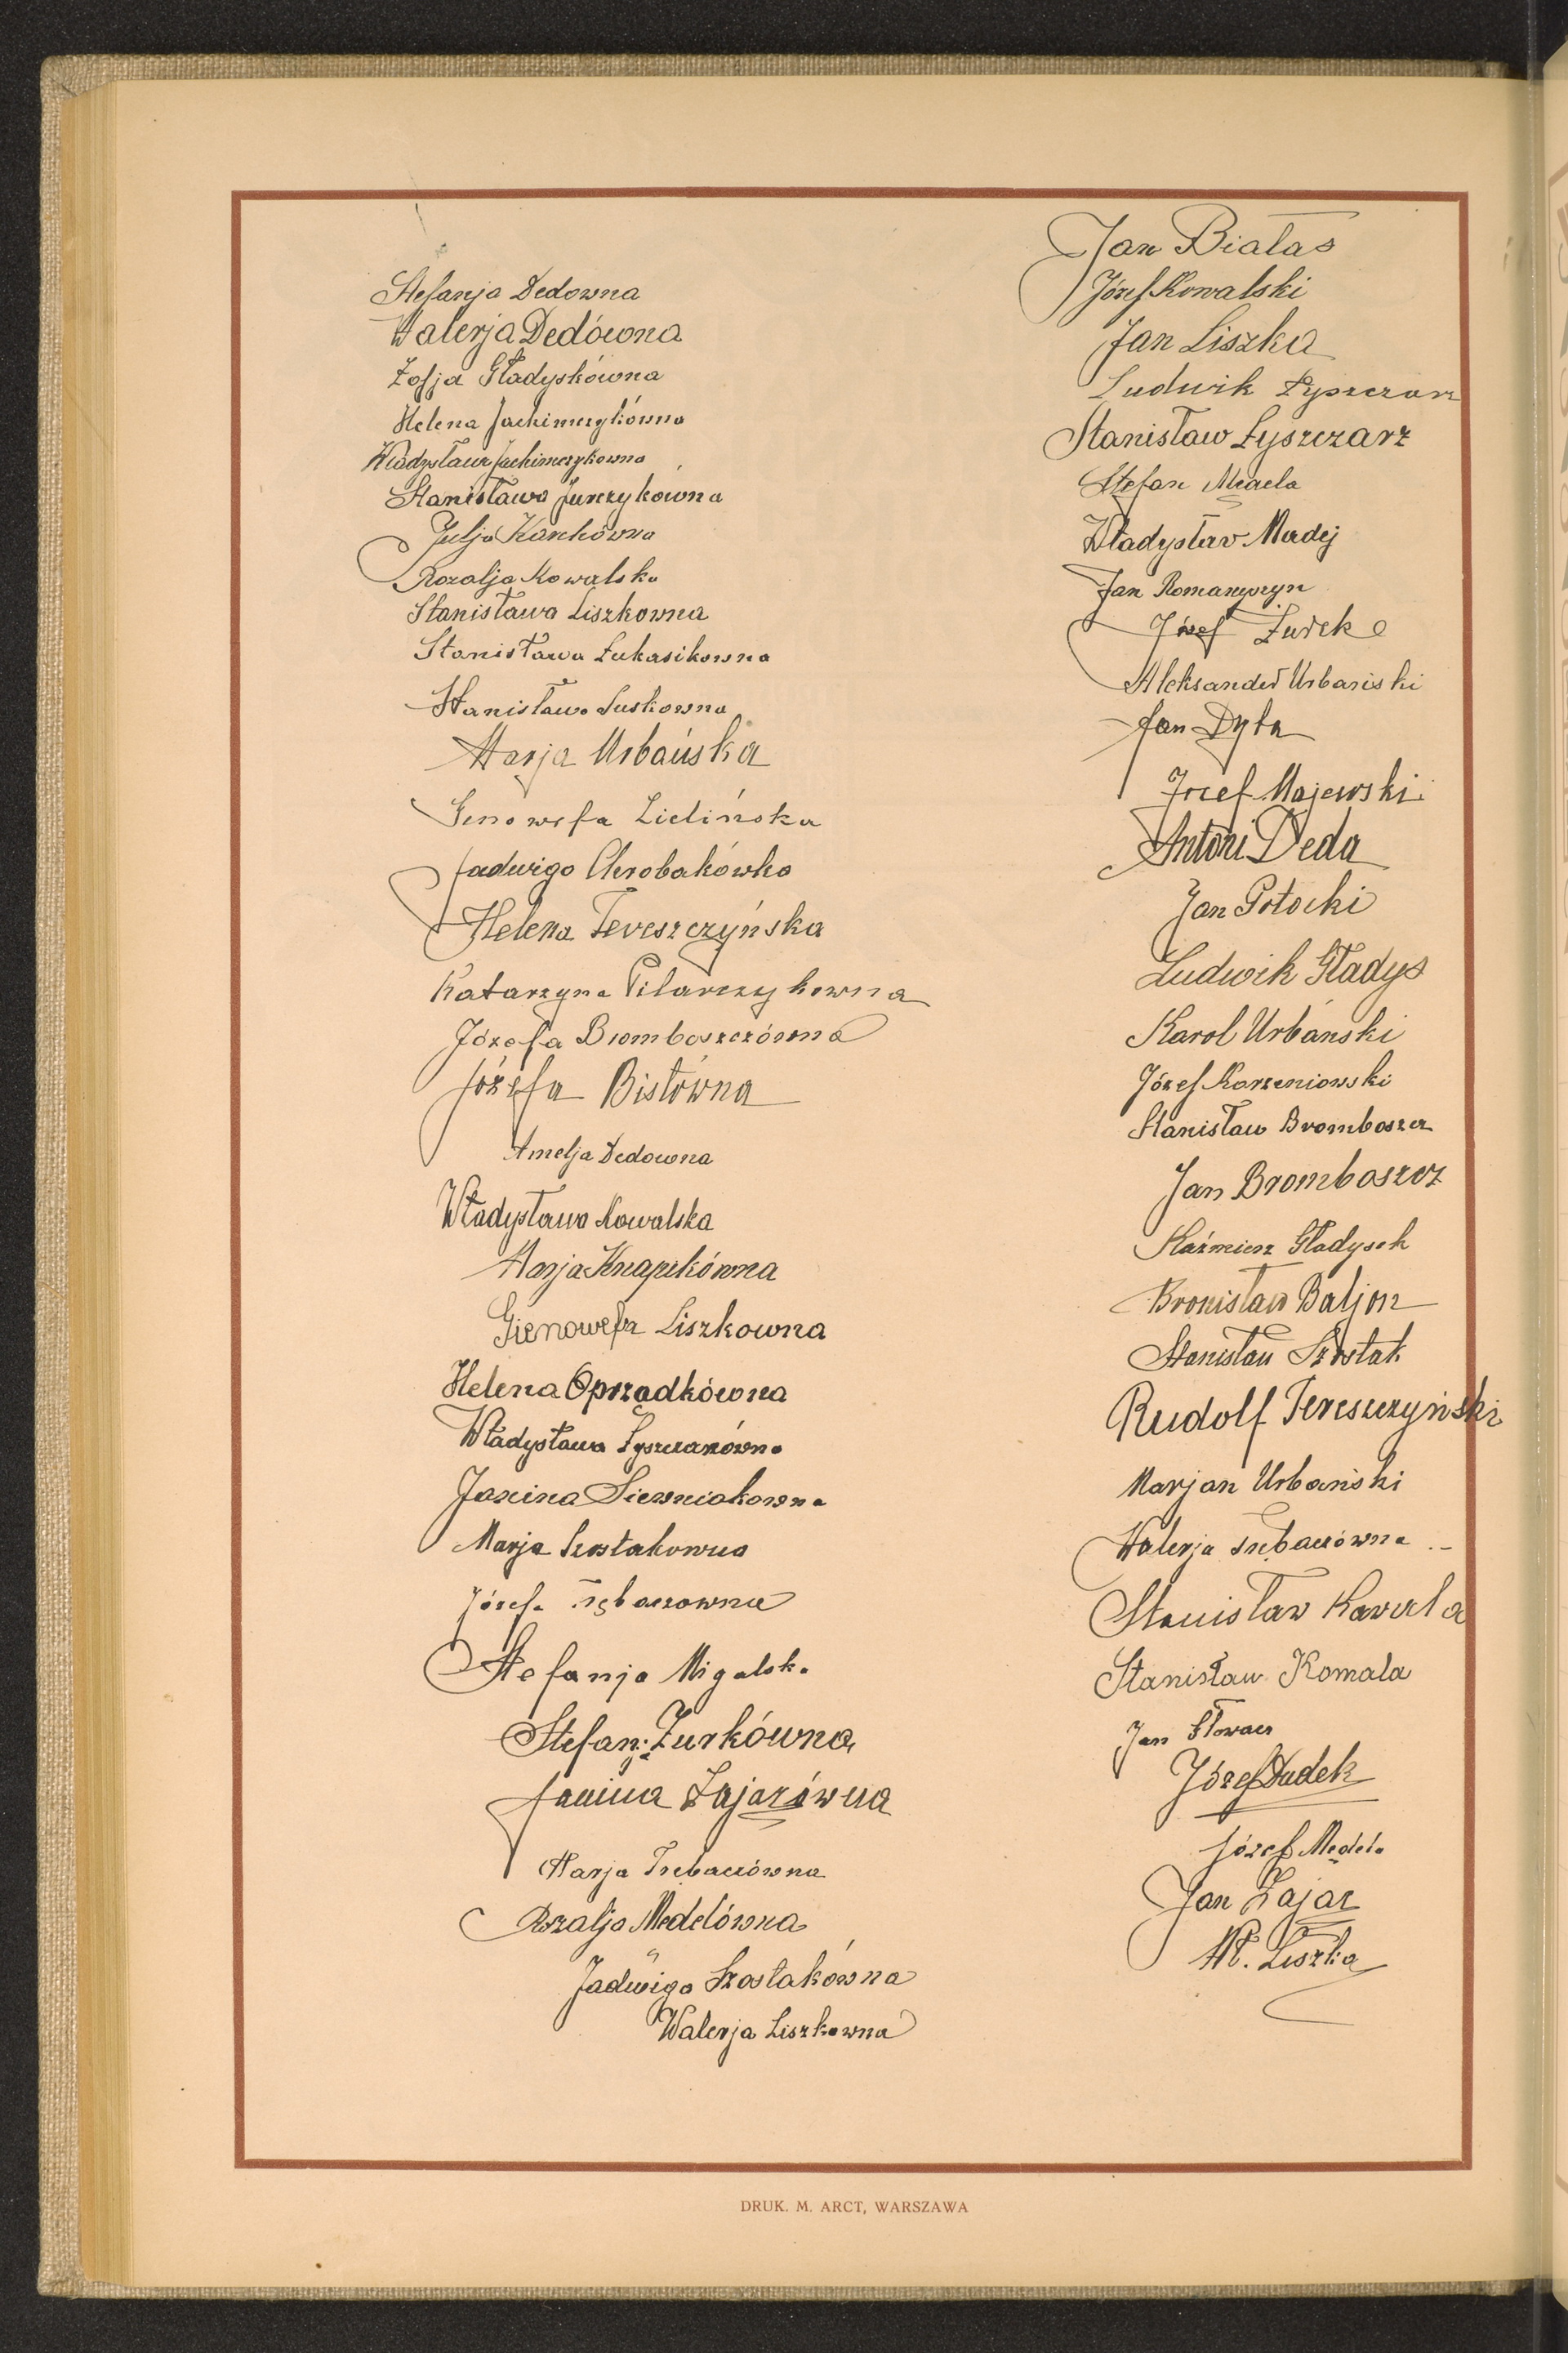 Stefanja Dedowna
Walerja Dedówna
Zofja Gładyskówna
Helena Jachimczykówna
Władysława Jachimczykowna
Stanisława Jurczykówna
Julja Kankówna
Rozalja Kowalska
Stanisława Liszkowna
Stanisława Łukasikowna
Stanisława Suskowna
Marja Urbańska
Genowefa Zielińska
Jadwiga Chrobakówka
Helena Tereszczyńska
Katarzyna Pilarczykowna
Józefa Bromboszczówna
Józefa Bistówna
Amelja Dedowna
Władysława Kowalska
Marja Knapikówna
Gienowefa Liszkowna
Helena Oprządkówna
Władysława Łyszczarówna
Janina Siewniakowna
Marja Szostakowna
Józefa Trębaczowna
Stefanja Migalska
Stefanja Żurkówna
Janina Zajazówna
Marja Trębaczówna
Rozalja Medelówna
Jadwiga Szostakówna
Walerja Liszkowna
Jan Białas
Józef Kowalski
Jan Liszka
Ludwik Łyszczarz
Stanisław Łyszczarz
Stefan
Władysław Madej
Jan Romanczyn
Józef Żurek
Aleksander Urbański
Jan Dyla
Józef Majewski
Antoni Deda
Jan Potocki
Ludwik Gładys
Karol Urbański
Józef Korzeniowski
Stanisław Brombosza
Jan Bromboszcz
Kaźmierz Gładysek
Bronisław Baljon
Stanisław Szostak
Rudolf Tereszczyński
Marjan Urbański
Walerja Trębaczówna
Stanisław Kawala
Stanisław Komala
Jan Słowacz
Józef Dudek
Józef Medela
Jan Zajaz
Wł. Liszka
DRUK. M. ARCT, WARSZAWA